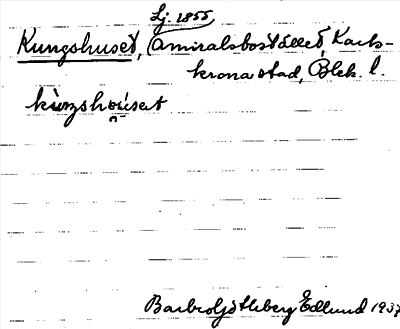 Lj. 1855
Kungshuset, (Amiralsbostället), Karls-
krona stad, Blek. l.
kùŋshùset
Barbro Ljótsberg Edlund 1937